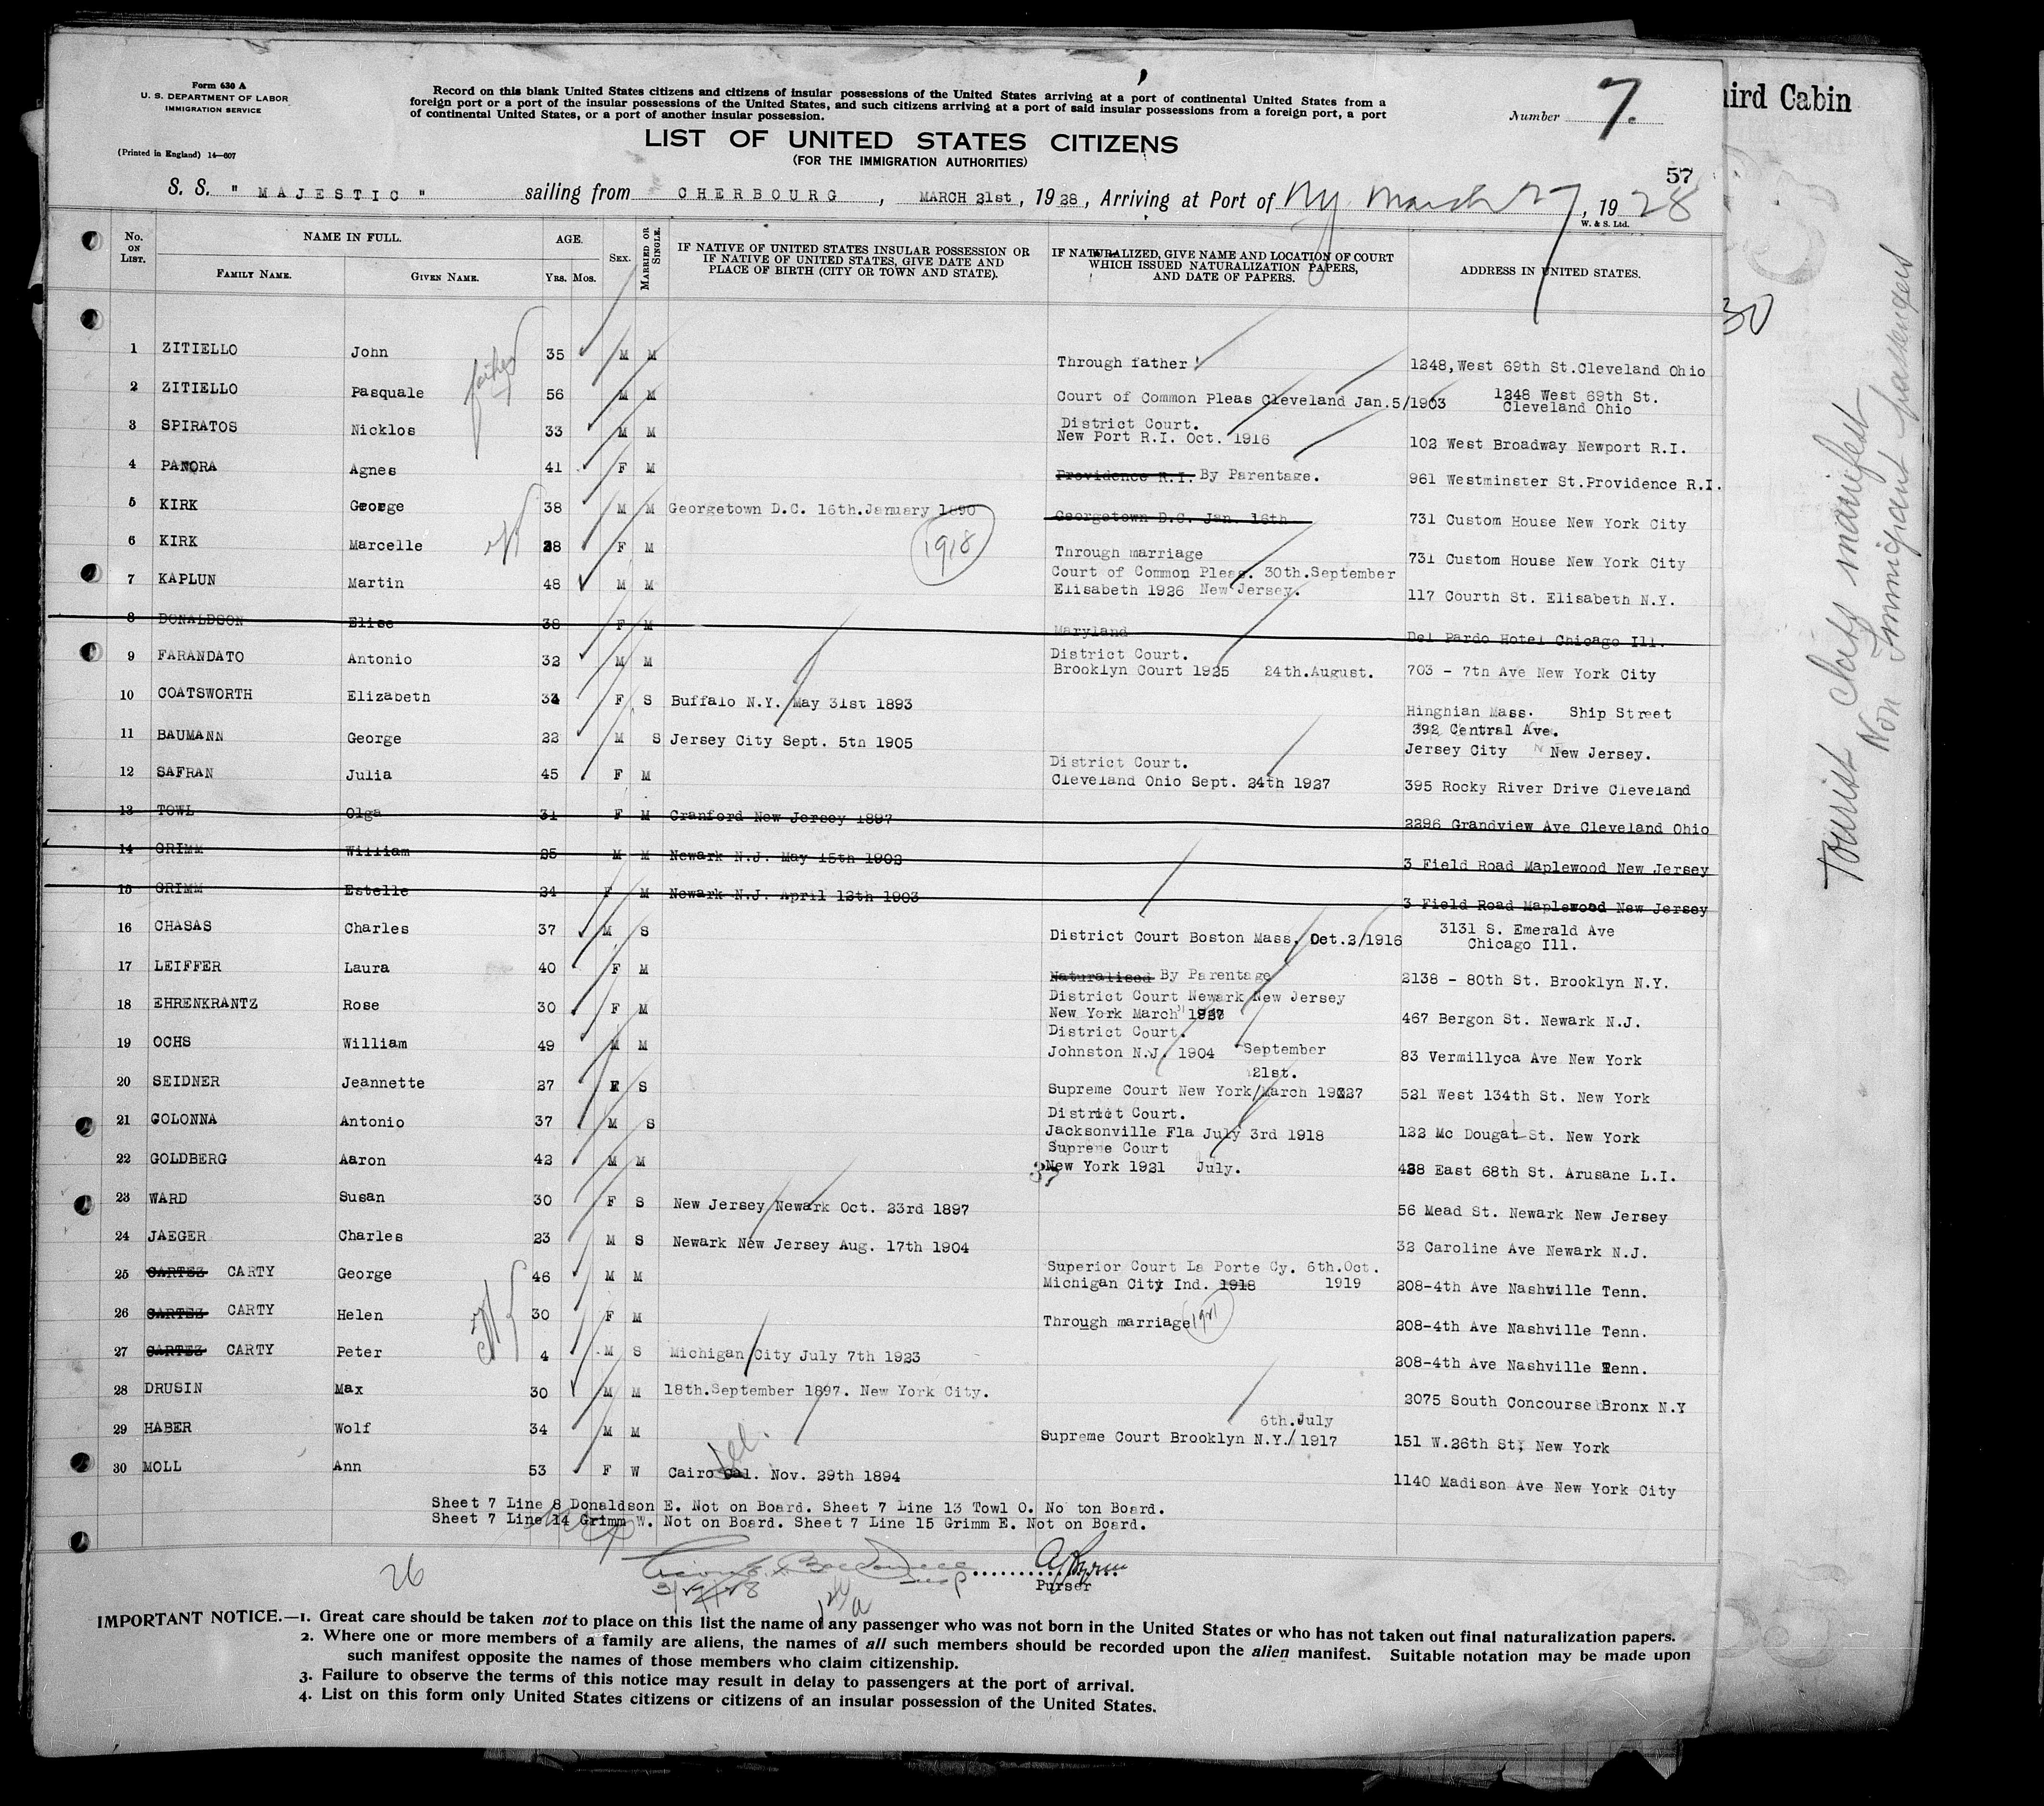 Form 630 A
U. S. DEPARTMENT OF LABOR
IMMIGRATION SERVICE
(Printed in England) 14—607
Record on this blank United States citizens and citizens of insular possessions of the United States arriving at a port of continental United States from a
foreign port or a port of the insular possessions of the United States, and such citizens arriving at a port of said insular possessions from a foreign port, a port
of continental United States, or a port of another insular possession.
Number 7.
hird Cabin
LIST OF UNITED STATES CITIZENS
(FOR THE IMMIGRATION AUTHORITIES)
57
S. S. " MAJESTIC " sailing from CHERBOURG, MARCH 21st, 1928, Arriving at Port of Ny March 27, 1928
W. & S. Ltd.
No. ON LIST. NAME IN FULL. FAMILY NAME. GIVEN NAME. AGE. Yrs. Mos. SEX. MARRIED OR SINGLE. IF NATIVE OF UNITED STATES INSULAR POSSESSION OR IF NATIVE OF UNITED STATES, GIVE DATE AND PLACE OF BIRTH (CITY OR TOWN AND STATE). IF NATURALIZED, GIVE NAME AND LOCATION OF COURT WHICH ISSUED NATURALIZATION PAPERS, AND DATE OF PAPERS. ADDRESS IN UNITED STATES.
30
father
1 ZITIELLO John 35 M M Through father 1248, West 69th St. Cleveland Ohio
2 ZITIELLO Pasquale 56 M M Court of Common Pleas Cleveland Jan. 5/1903 1248 West 69th St.
Cleveland Ohio
3 SPIRATOS Nicklos 33 M M District Court.
New Port R.I. Oct. 1916 102 West Broadway Newport R.I.
4 PANORA Agnes 41 F M Providence R.I. By Parentage. 961 Westminster St. Providence R.I.
5 KIRK George 38 M M Georgetown D.C. 16th. January 1890 Georgetown D.C. Jan. 16th 731 Custom House New York City
6 KIRK Marcelle 28 F M 1918 Through marriage 731 Custom House New York City
7 KAPLUN Martin 48 M M Court of Common Pleas. 30th. September
Elisabeth 1926 New Jersey. 117 Courth St. Elisabeth N.Y.
8 DONALDSON Elise 38 F M Maryland Del Pardo Hotel Chicago Ill.
9 FARANDATO Antonio 32 M M District Court.
Brooklyn Court 1925 24th. August. 703 - 7th Ave New York City
10 COATSWORTH Elizabeth 34 F S Buffalo N.Y. May 31st 1893 Hinghian Mass. Ship Street
11 BAUMANN George 22 M S Jersey City Sept. 5th 1905 392 Central Ave.
Jersey City New Jersey.
12 SAFRAN Julia 45 F M District Court.
Cleveland Ohio Sept. 24th 1927 395 Rocky River Drive Cleveland
13 TOWL Olga 31 F M Cranford New Jersey 1897 2296 Grandview Ave Cleveland Ohio
14 GRIMM William 25 M M Newark N.J. May 15th 1902 3 Field Road Maplewood New Jersey
15 GRIMM Estelle 24 F M Newark N.J. April 12th 1903 3 Field Road Maplewood New Jersey
16 CHASAS Charles 37 M S District Court Boston Mass. Oct. 2/1916 3131 S. Emerald Ave
Chicago Ill.
17 LEIFFER Laura 40 F M Naturalised By Parentage 2138 - 80th St. Brooklyn N.Y.
18 EHRENKRANTZ Rose 30 F M District Court Newark New Jersey
New York March 1927 467 Bergon St. Newark N.J.
19 OCHS William 49 M M District Court.
Johnston N.J. 1904 September 83 Vermillyca Ave New York
20 SEIDNER Jeannette 27 F S 21st.
Supreme Court New York/March 1927 521 West 134th St. New York
21 GOLONNA Antonio 37 M S District Court.
Jacksonville Fla July 3rd 1918 122 Mc Dougat St. New York
22 GOLDBERG Aaron 42 M M Supreme Court
New York 1921 July. 428 East 68th St. Arusane L.I.
23 WARD Susan 30 F S New Jersey Newark Oct. 23rd 1897 56 Mead St. Newark New Jersey
24 JAEGER Charles 23 M S Newark New Jersey Aug. 17th 1904 32 Caroline Ave Newark N.J.
25 CARTEZ CARTY George 46 M M Superior Court La Porte Cy. 6th. Oct.
Michigan City Ind. 1918 1919 208-4th Ave Nashville Tenn.
26 CARTEZ CARTY Helen 30 F M Through marriage 1921 208-4th Ave Nashville Tenn.
27 CARTEZ CARTY Peter 4 M S Michigan City July 7th 1923 208-4th Ave Nashville Tenn.
28 DRUSIN Max 30 M M 18th. September 1897. New York City. 2075 South Concourse Bronx N.Y
29 HABER Wolf 34 M M 6th. July
Supreme Court Brooklyn N.Y./ 1917 151 W. 26th St, New York
30 MOLL Ann 53 F W Cairo Cal. Nov. 29th 1894 1140 Madison Ave New York City
Sheet 7 Line 8 Donaldson E. Not on Board. Sheet 7 Line 13 Towl O. No ton Board.
Sheet 7 Line 14 Grimm W. Not on Board. Sheet 7 Line 15 Grimm E. Not on Board.
26
Purser
IMPORTANT NOTICE.—1. Great care should be taken not to place on this list the name of any passenger who was not born in the United States or who has not taken out final naturalization papers.
2. Where one or more members of a family are aliens, the names of all such members should be recorded upon the alien manifest. Suitable notation may be made upon
such manifest opposite the names of those members who claim citizenship.
3. Failure to observe the terms of this notice may result in delay to passengers at the port of arrival.
4. List on this form only United States citizens or citizens of an insular possession of the United States.
Tourist Class manifest
Non Immigrant passengers